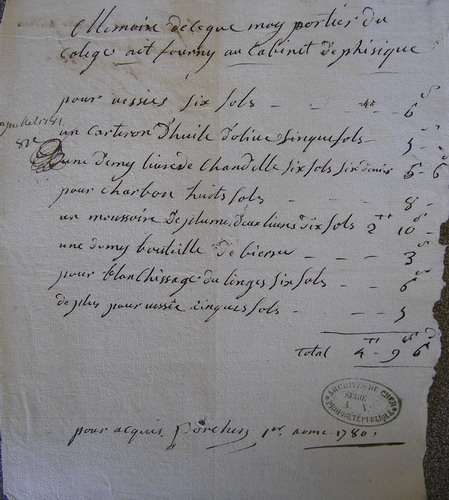 Memoire de ce que moy portier du
colege ait fourny au Cabinet de phisique
pour vessies six sols - - " - 6 s
un carteron d'huile d'olive sinque sols - - 5 -
une demy livre de Chandelle six sols six denier 6 - 6
pour charbon huit sols - - 8 -
un moussoire de plume deux livres dix sols 2 tt 10 s
une demy bouteille de bierre - - - 3 s
pour blanchissage du linges six sols - - 6
de plus pour vessie cinques sols - - 5
Total 4 tt - 9 s 6 d
ARCHIVES DU CHER
SERIE
PROPRIÉTÉ PUBLIQUE
pour acquis Porcher 1780